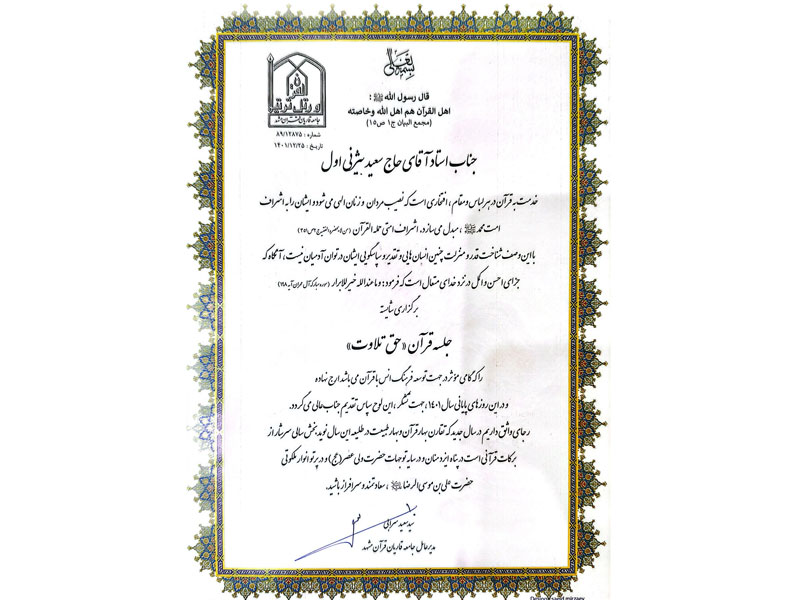 بسمه تعالی
قال رسول الله ﷺ :
اهل القرآن هم اهل الله وخاصته
(مجمع البیان ج۱ ص۱۵)
و رتل القرآن ترتیلا
جامعه قاریان قرآن مشهد
شماره : ۸۹/۱۲۸۷۵
تاریخ : ۱۴۰۱/۱۲/۲۵
جناب استاد آقای حاج سعید بیژنی اول
خدمت به قرآن در هر لباس و مقام ، افتخاری است که نصیب مردان و زنان الهی می شود و ایشان را به اشراف
امت محمد ﷺ ، مبدل می سازد. اشراف امتی حمله القرآن
با این وصف شناخت قدر و منزلت چنین انسان هایی و تقدیر و سپاسگویی ایشان در توان آدمیان نیست ، آنگاه که
جزای احسن و اکمل در نزد خدای متعال است که فرمود : و ما عندالله خیر للابرار (سوره مبارکه آل عمران آیه ۱۹۸)
برگزاری شایسته
جلسه قرآن «حق تلاوت»
را که گامی مؤثر در جهت توسعه فرهنگ انس با قرآن می باشد ارج نهاده
و در این روزهای پایانی سال ۱۴۰۱، جهت تشکر ، این لوح سپاس تقدیم جناب عالی می گردد.
رجای واثق داریم در سال جدید که تقارن بهار قرآن و بهار طبیعت در طلیعه این سال نوید بخش سالی سرشار از
برکات قرآنی است در پناه ایزد منان و در سایه توجهات حضرت ولی عصر (عج) و در پرتو انوار ملکوتی
حضرت علی بن موسی الرضا ، سعادتمند و سرافراز باشید.
سید سعید
مدیر عامل جامعه قاریان قرآن مشهد